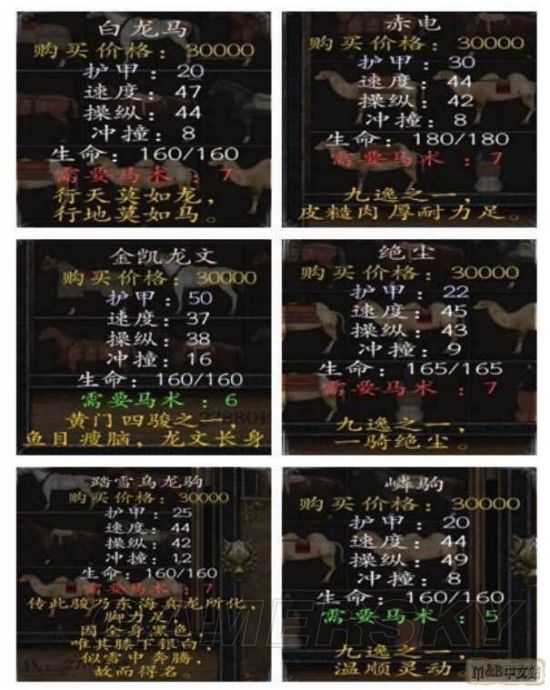 白龙马
购买价格：30000
护甲：20
速度：47
操纵：44
冲撞：8
生命：160/160
需要马术：7
行天莫如龙，
行地莫如马。
赤电
购买价格：30000
护甲：30
速度：44
操纵：42
冲撞：8
生命：180/180
需要马术：7
九逸之一，
皮糙肉厚耐力足。
金凯龙文
购买价格：30000
护甲：50
速度：37
操纵：38
冲撞：16
生命：160/160
需要马术：6
黄门四骏之一，
鱼目瘦脑，龙文长身
绝尘
购买价格：30000
护甲：22
速度：45
操纵：43
冲撞：9
生命：165/165
需要马术：7
九逸之一，
一骑绝尘。
踏雪乌龙驹
购买价格：30000
护甲：25
速度：44
操纵：42
冲撞：12
生命：160/160
需要马术：7
传此骏乃东海真龙所化，
脚力足，
因全身黑色，
唯其膝下银白，
似雪中奔腾，
故而得名。
嶙驹
购买价格：30000
护甲：20
速度：44
操纵：49
冲撞：8
生命：160/160
需要马术：5
九逸之一，
温顺灵动
GAMERSKY
M&B中文站